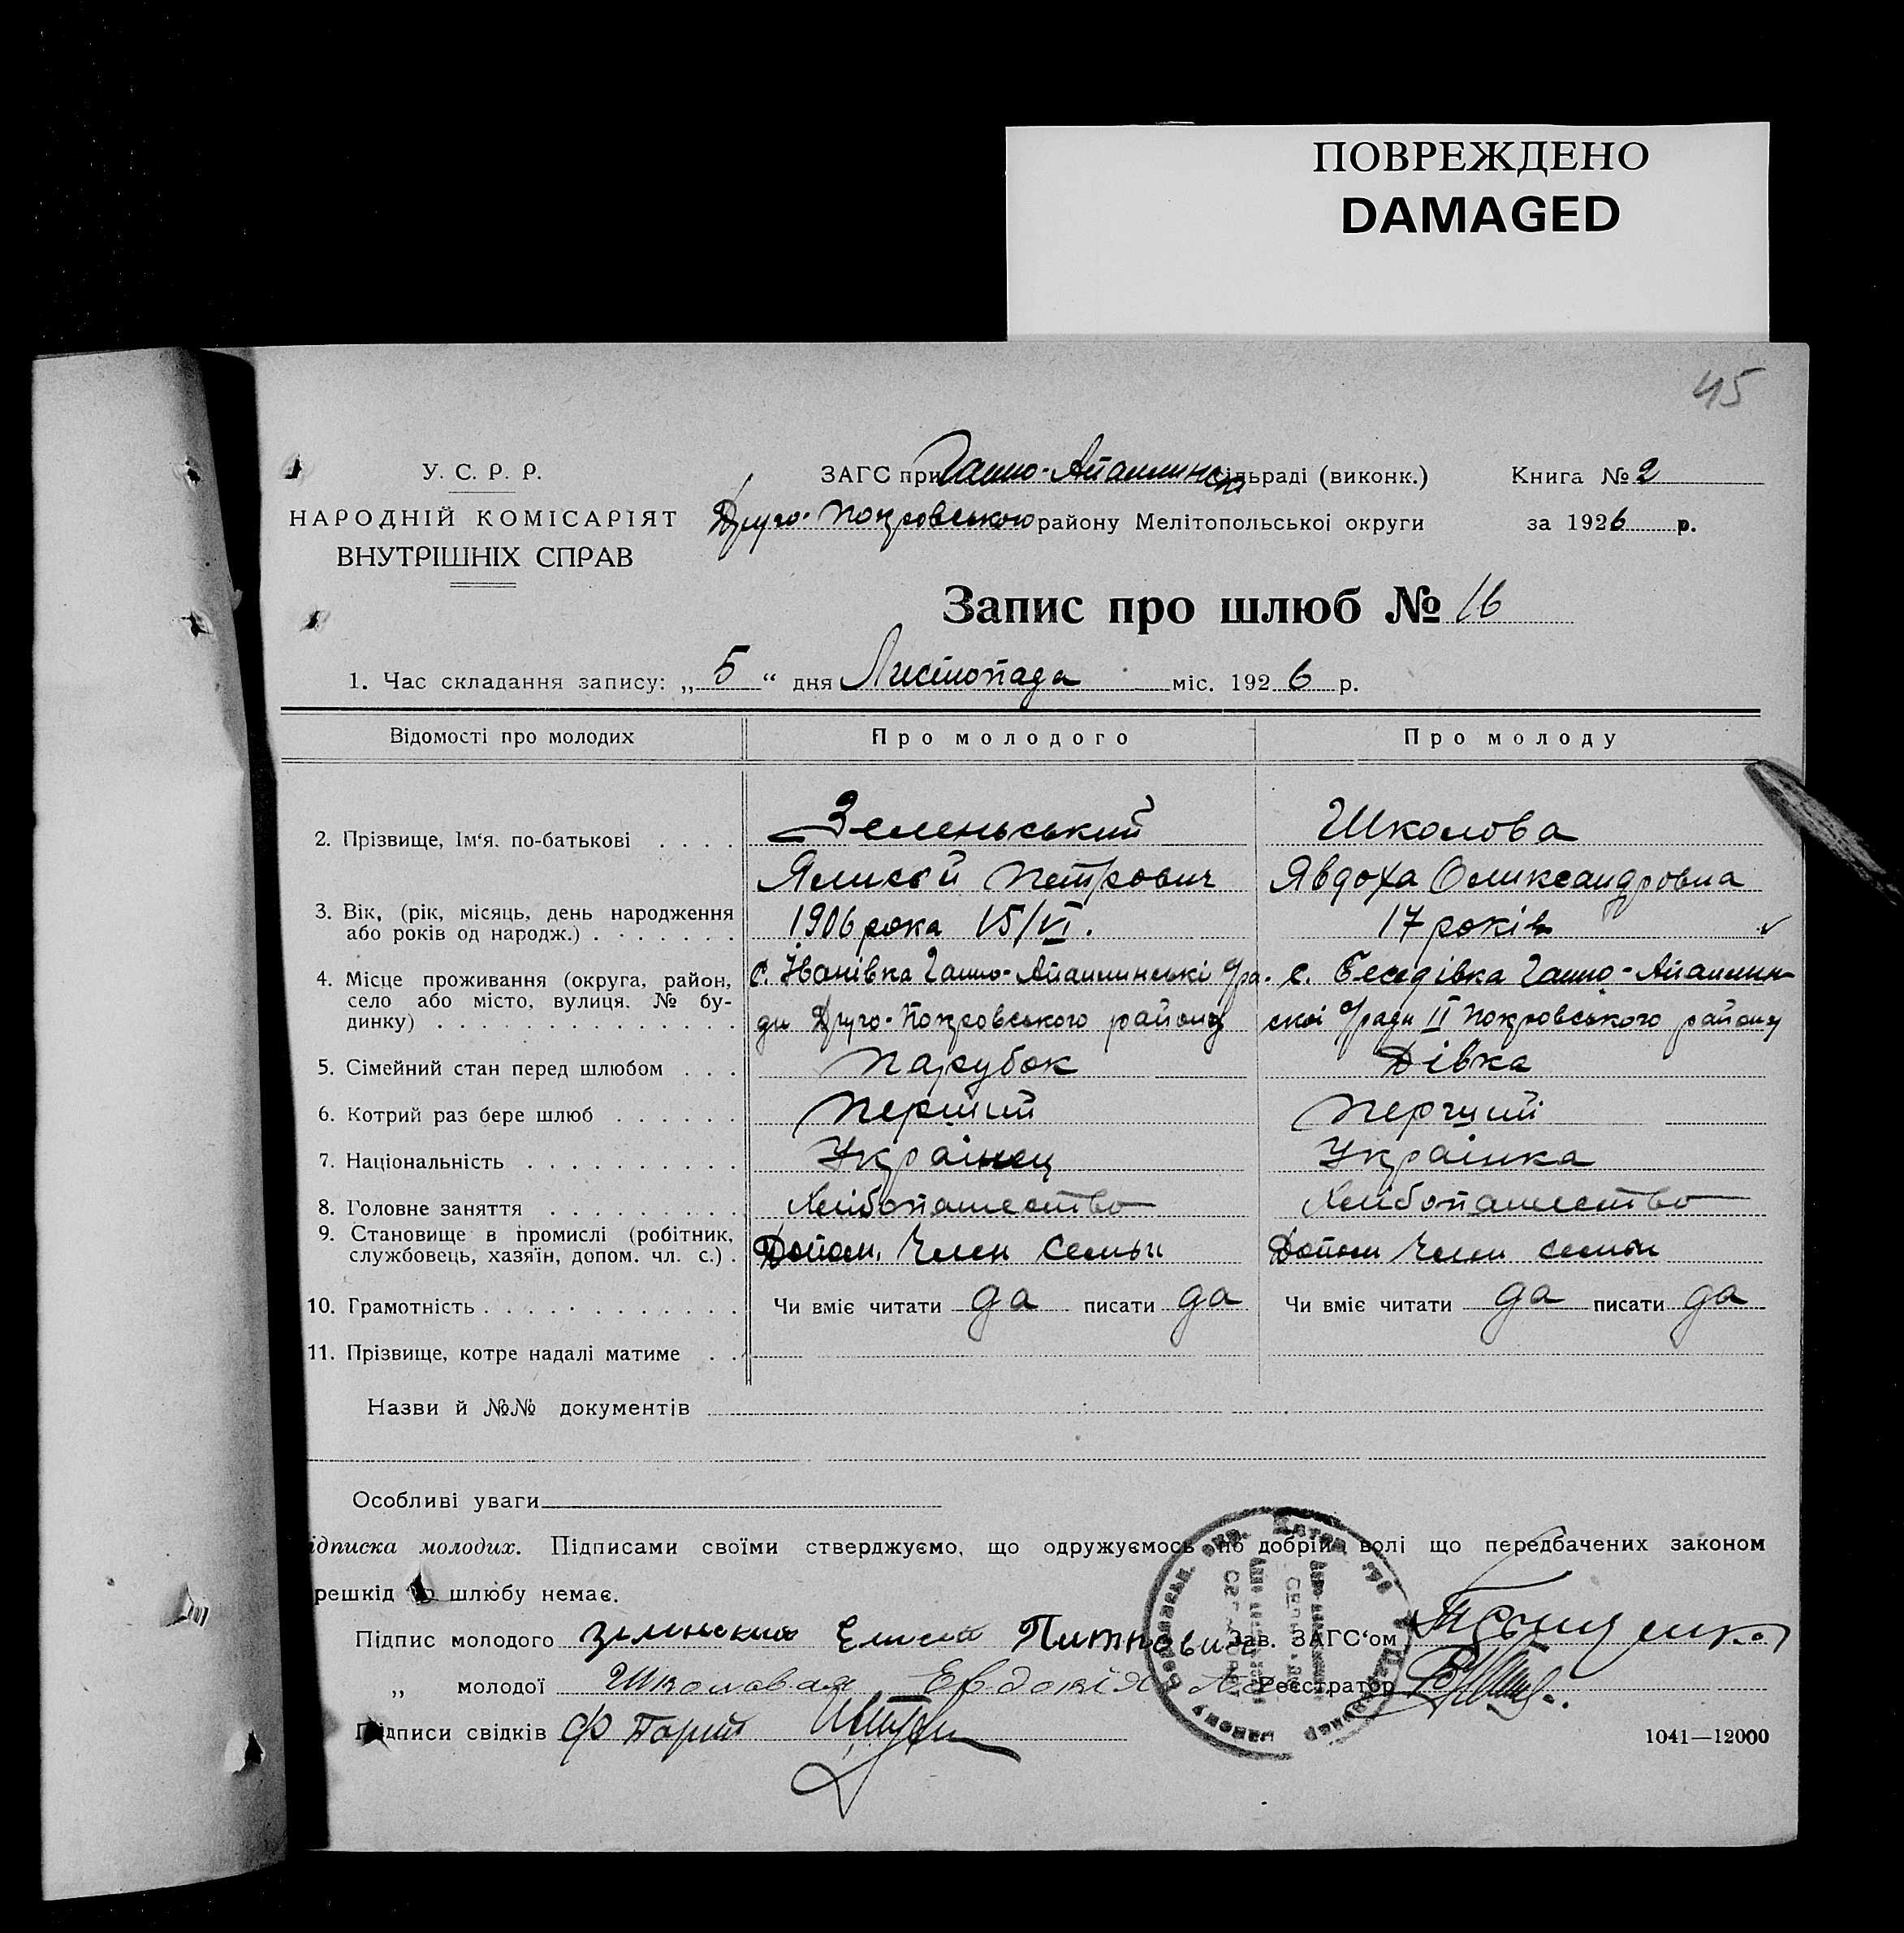 ПОВРЕЖДЕНО
DAMAGED
45
У. С. Р. Р.
НАРОДНІЙ КОМІСАРІЯТ
ВНУТРІШНІХ СПРАВ
ЗАГС при Ганно-Апашинск сільраді (виконк.)
Друго-Покровського району Мелітопольської округи
Книга № 2
за 1926 р.
Запис про шлюб № 16
1. Час складання запису: „ 5 “ дня Листопада міс. 1926 р.
Відомості про молодих Про молодого Про молоду
2. Прізвище, Ім‘я. по-батькові . . . . Зеленьський Школова
Ялисей Петрович Явдоха Олександровна
3. Вік, (рік, місяць, день народження
або років од народж.) . . . . . . . 1906 рока 15/VI. 17 років
4. Місце проживання (округа, район,
село або місто, вулиця. № бу-
динку) . . . . . . . . . . . . . .
с. Іванівка Ганно-Апашинські с/ра-
ди Друго-Покровського району
с. Беседівка Ганно-Апашин-
скоі с/ради II Покровського району
5. Сімейний стан перед шлюбом . . . Парубок Дівка
6. Котрий раз бере шлюб . . . . . . Перший Перший
7. Національність . . . . . . . . . . Українец Українка
8. Головне заняття . . . . . . . . . Хлібопашество Хлібопашество
9. Становище в промислі (робітник,
службовець, хазяїн, допом. чл. с.) . Допом. Член семьи Допом Член семьи
10. Грамотність . . . . . . . . . . . . Чи вміє читати да писати да Чи вміє читати да писати да
11. Прізвище, котре надалі матиме . .
Назви й №№ документів
Особливі уваги
ідписка молодих. Підписами своїми стверджуємо, що одружуємось по добрій волі що передбачених законом
решкід до шлюбу немає.
Підпис молодого Зеленский Елисей Зав. ЗАГС‘ом
„ молодої Школовая Евдокія Реєстратор
Підписи свідків
1041—12000